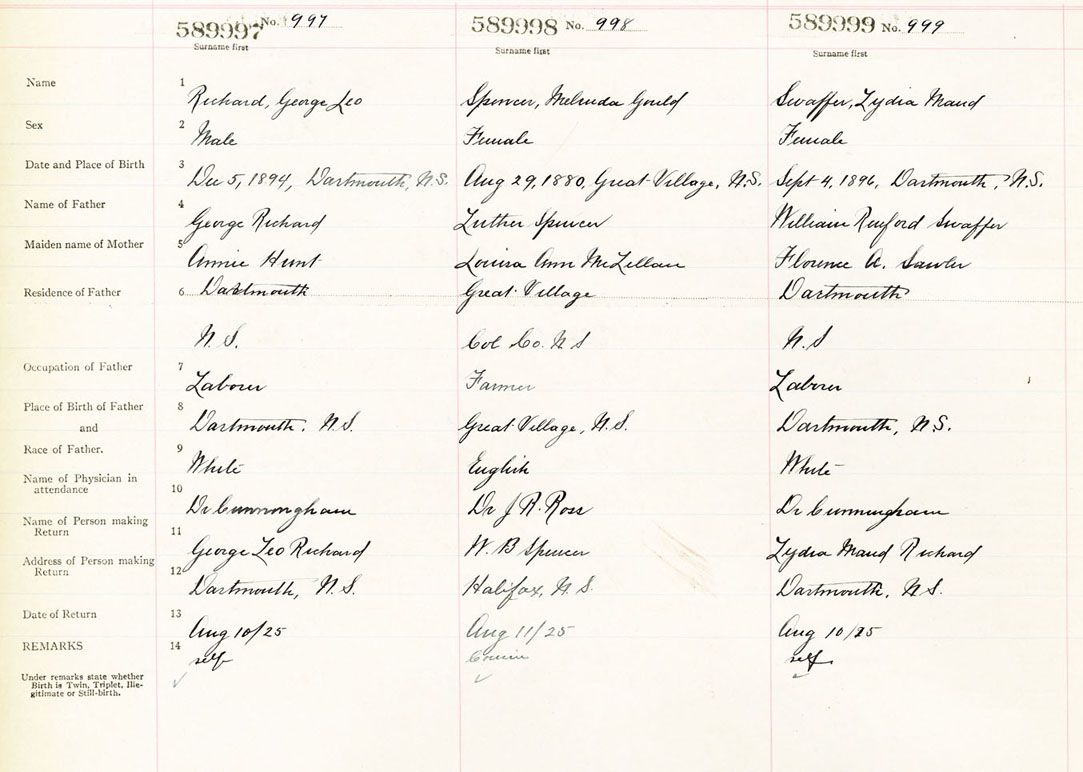 589997 No. 997 589998 No. 998 589999 No. 999
Surname first Surname first Surname first
Name 1 Richard, George Leo Spencer, Melinda Gould Swaffer, Lydia Maud
Sex 2 Male Female Female
Date and Place of Birth 3 Dec 5, 1894, Dartmouth, N.S. Aug 29, 1880, Great Village, N.S. Sept 4, 1896, Dartmouth, N.S.
Name of Father 4 George Richard Luther Spencer William Swaffer
Maiden name of Mother 5 Annie Hunt Louisa Ann McLellan Florence A. Sawler
Residence of Father 6 Dartmouth Great Village Dartmouth
N.S. Col Co. N S N.S
Occupation of Father 7 Laborer Farmer Laborer
Place of Birth of Father 8 Dartmouth, N.S. Great Village, N.S. Dartmouth, N.S.
and
Race of Father. 9 White English White
Name of Physician in
attendance 10 Dr Cunnongham Dr J R. Ross Dr Cunningham
Name of Person making
Return 11 George Leo Richard W. B Spencer Lydia Maud Richard
Address of Person making
Return 12 Dartmouth, N.S. Halifax, N.S. Dartmouth, N.S.
Date of Return 13 Aug 10/25 Aug 11/25 Aug 10/25
REMARKS 14 self Cousin self
Under remarks state whether
Birth is Twin, Triplet, Ille-
gitimate or Still-birth.